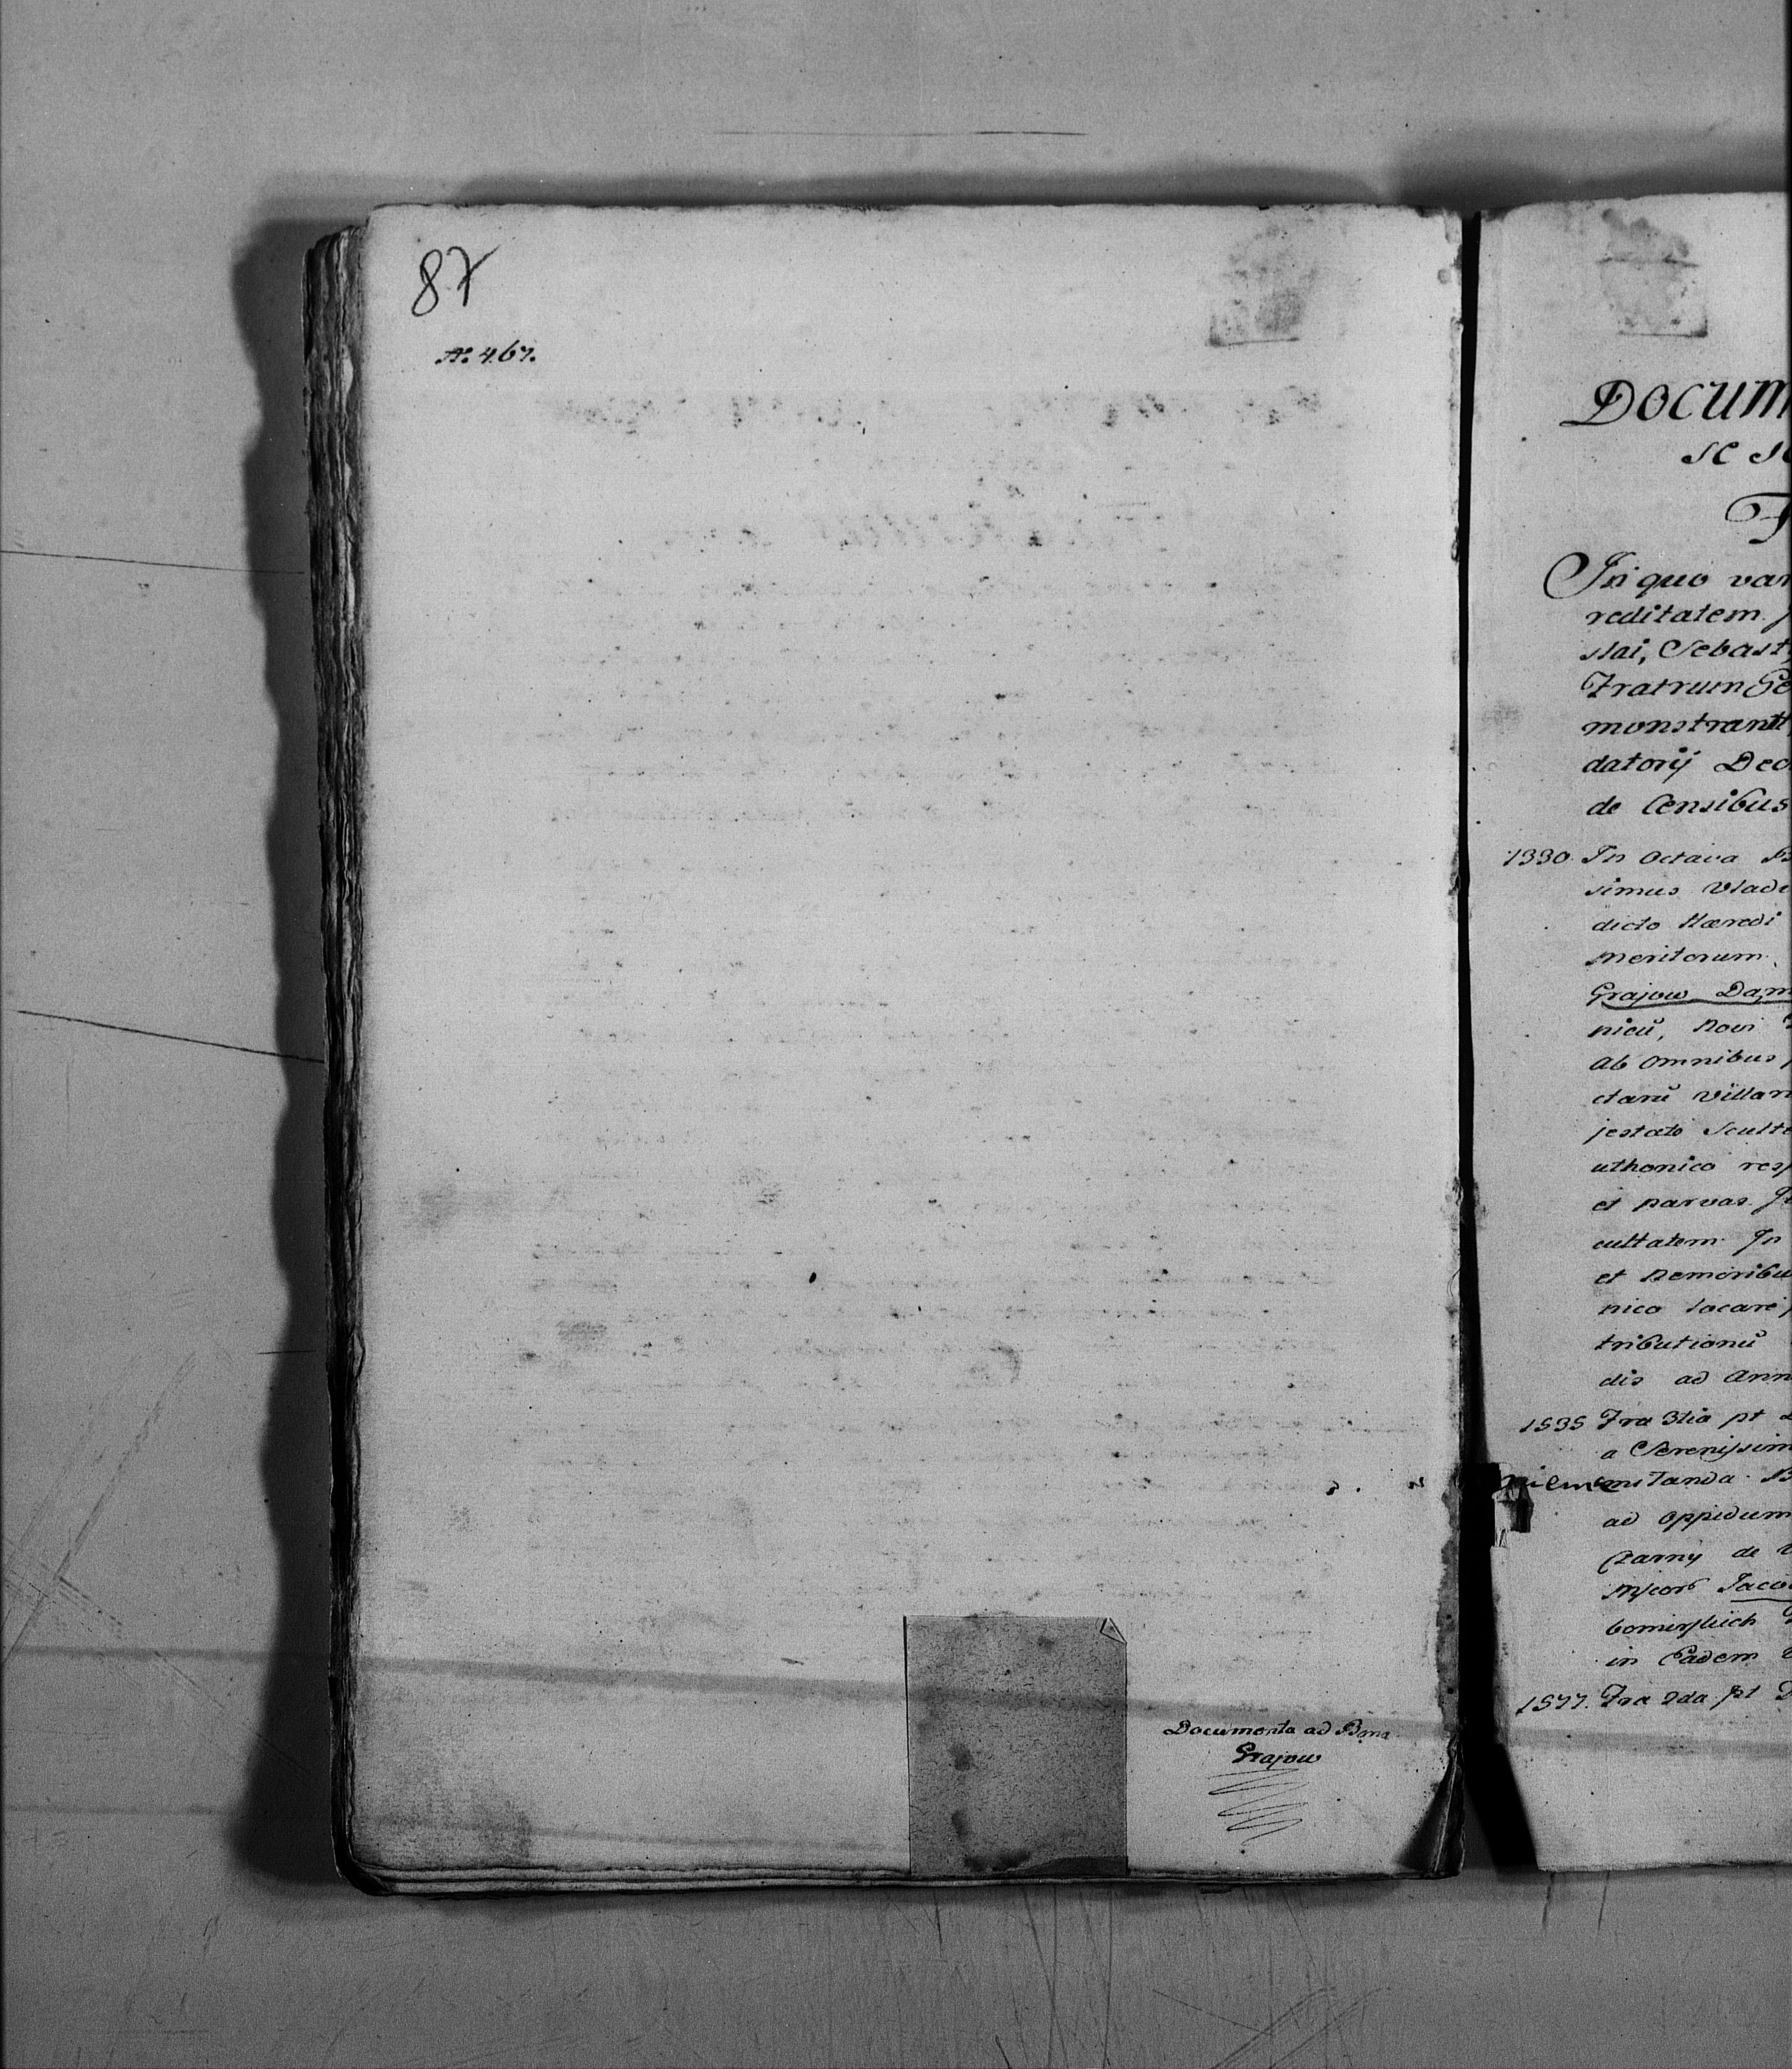 87
No. 467.
Documenta ad Bona
Grajow
Docum
se se
F
In quo var
reditatem
slai, Sebast
Fratrum Ge
monstrantt
datorij Dec
de Censibus
1330. In Octava
simus Vlade
dicto Hæredi
meritorum
Grajow Dam
nicũ, Novi
ab omnibus
ctarũ Villar
jestate Sculte
uthonico resp
et parvas
cultatem In
et Nemoribu
nico locare
tributionũ
dis ad Ann
1535 Fra 3tia pt
a Serenissim
nstanda
ad oppidum
Czarny de
Jaco
in Eadem
1577. Fra 2da pt